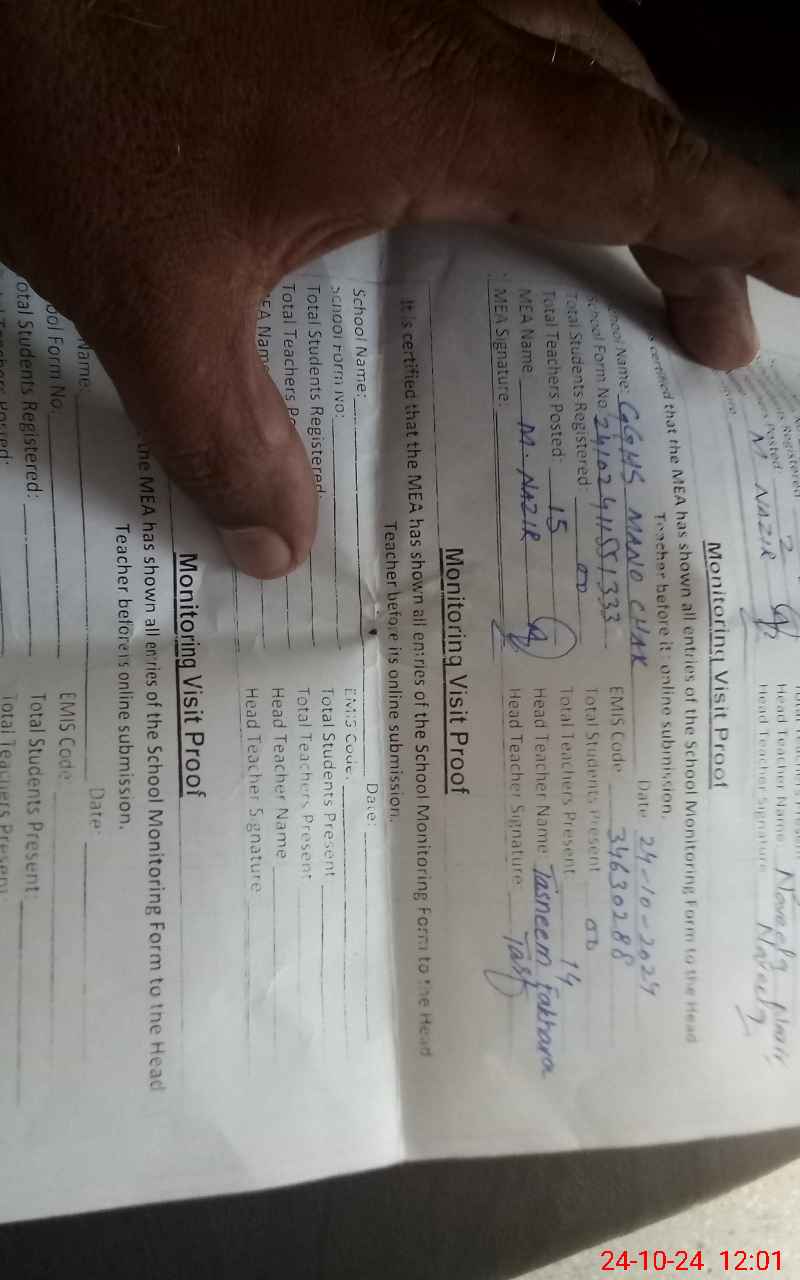 Registered
Posted: 2
M NAZIR
Head Teacher Name
Head Teacher Signature
Monitoring Visit Proof
certified that the MEA has shown all entries of the School Monitoring Form to the Head
Teacher before it online submission.
School Name: GGHS MANO CHAK Date 24-10-2024
School Form No EMIS Code 34630288
Total Students Registered: Total Students Present
Total Teachers Posted: 15 Total Teachers Present 14
MEA Name M. NAZIR Head Teacher Name Tasneem Fakhara
MEA Signature: Head Teacher Signature
Monitoring Visit Proof
It is certified that the MEA has shown all entries of the School Monitoring Form to the Head
Teacher before its online submission.
School Name: Date:
School Form No: EMIS Code:
Total Students Registered: Total Students Present
Total Teachers Total Teachers Present
MEA Name Head Teacher Name
Head Teacher Signature
Monitoring Visit Proof
the MEA has shown all entries of the School Monitoring Form to the Head
Teacher before its online submission.
Name: Date:
Form No. EMIS Code
Total Students Registered: Total Students Present:
Posted: Total Teachers Present:
24-10-24 12:01